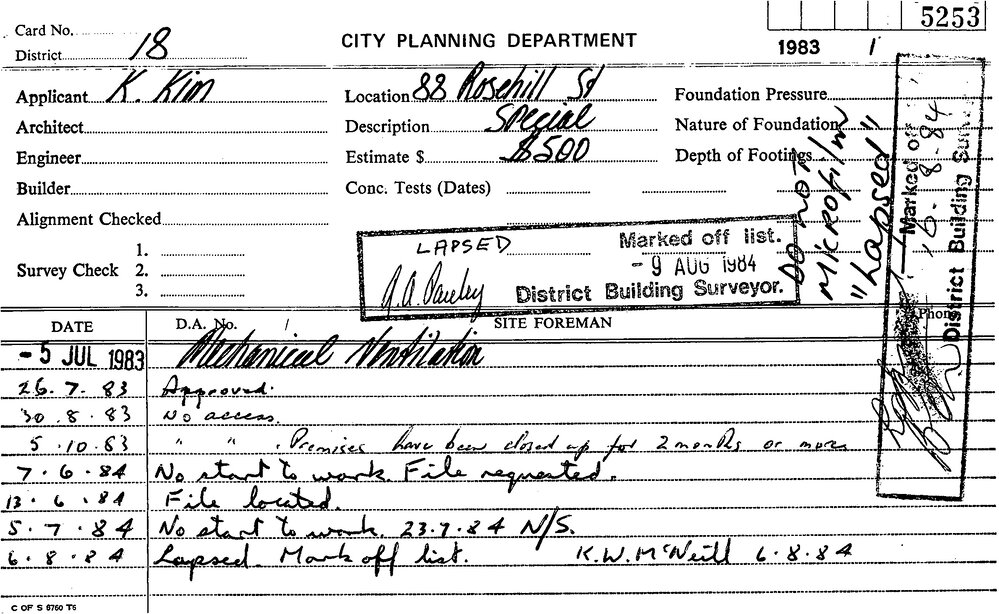 5253
Card No.
District 18
CITY PLANNING DEPARTMENT
1983 1
Applicant K. Kim
Location 88 Rosehill St
Foundation Pressure
Architect
Description Special
Nature of Foundation
Engineer
Estimate $ $500
Depth of Footings
Builder
Conc. Tests (Dates)
Alignment Checked
Survey Check
1.
2.
3.
LAPSED
Marked off list.
- 9 AUG 1984
District Building Surveyor.
DO NOT
MICROFILM
"Lapsed"
Marked off
16-8-84
District Building Surve
DATE
D.A. No. /
SITE FOREMAN
Phone
- 5 JUL 1983 Mechanical Ventilation
26.7.83 Approved.
30.8.83 No access.
5.10.83 " " . Premises have been closed up for 2 months or more
7.6.84 No start to work. File requested.
13.6.84 File located.
5.7.84 No start to work. 23.7.84 N/S.
6.8.84 Lapsed. Mark off list. K.W. McNeill 6.8.84
C OF S 6760 T6